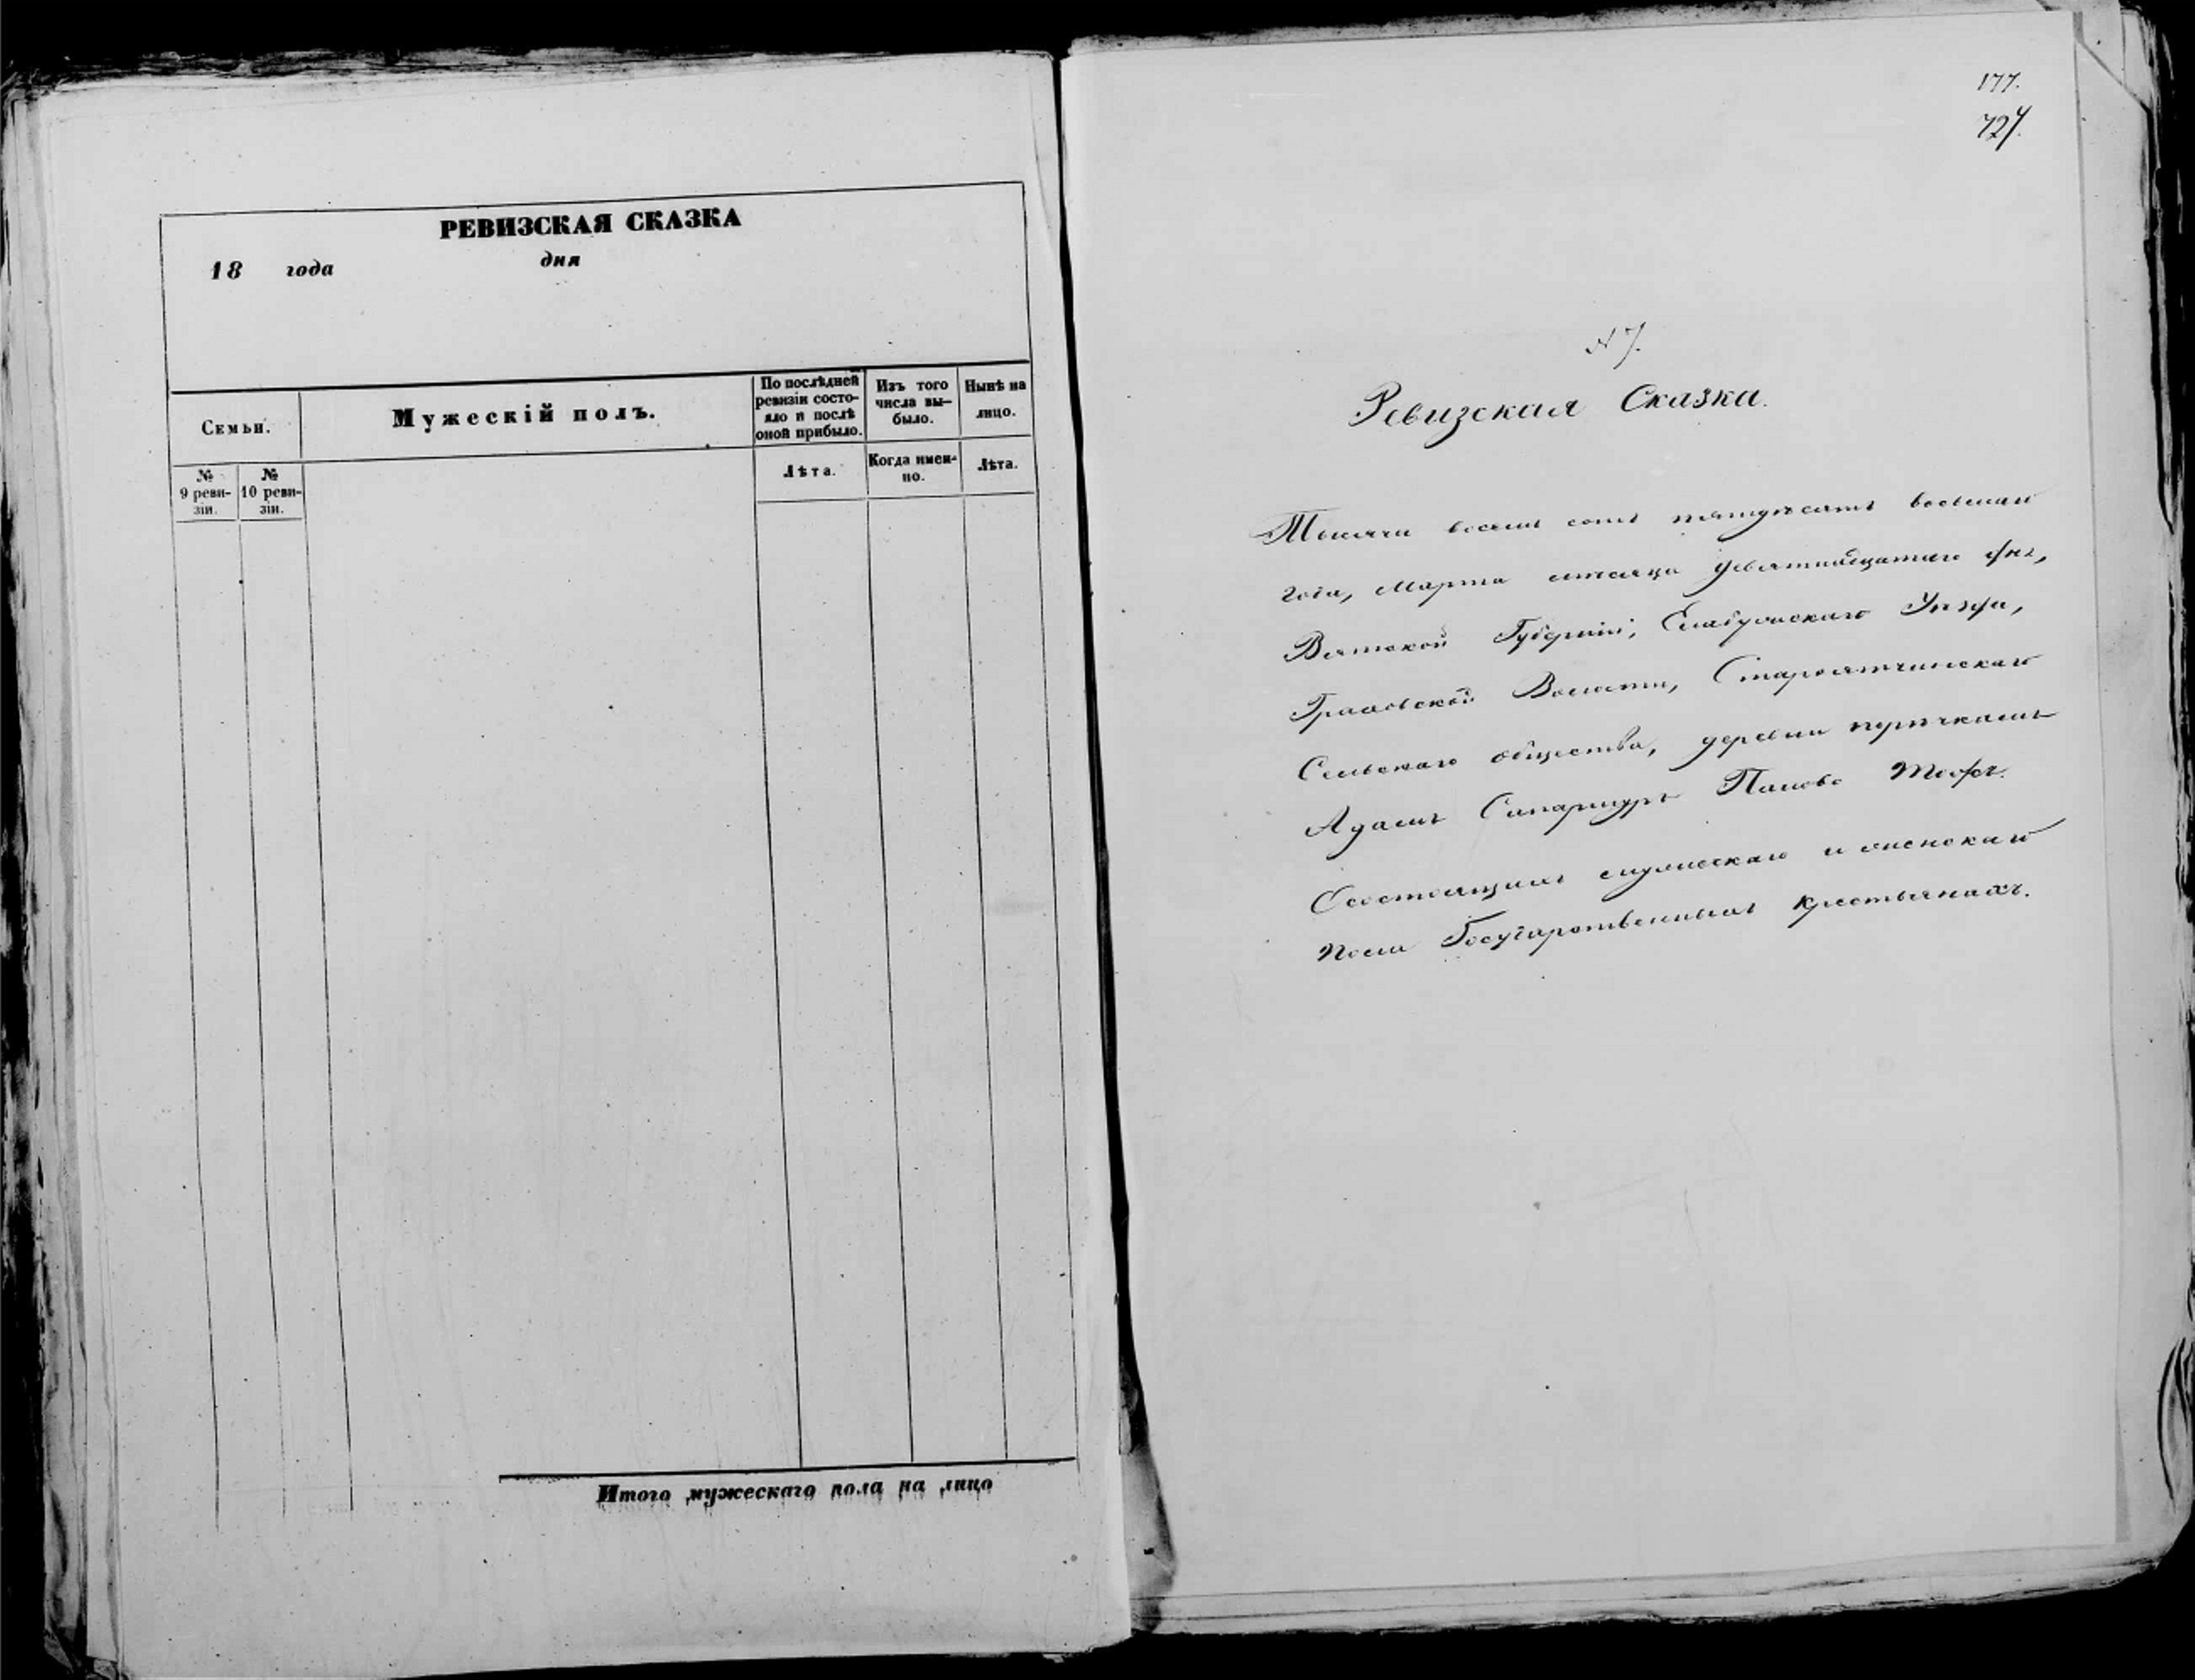 РЕВИЗСКАЯ СКАЗКА
18 года дня
Семьи.
Мужескій полъ.
По послѣдней ревизіи состояло и послѣ оной прибыло.
Изъ того числа выбыло.
Нынѣ на лицо.
№ 9 ревизіи.
№ 10 ревизіи.
Лѣта.
Когда именно.
Лѣта.
Итого мужескаго пола на лицо
177.
724.
№ 7.
Ревизская Сказка.
Тысяча восемь сотъ пятдесятъ восьмаго
года, Марта мѣсяца девятнадцатаго дня,
Вятской Губерніи, Елабужскаго Уѣзда,
Граховской Волости, Староятчинскаго
Сельскаго общества, деревни
Адамъ Панова тожъ.
Состоящихъ мужескаго и женскаго
пола Государственныхъ крестьянахъ.